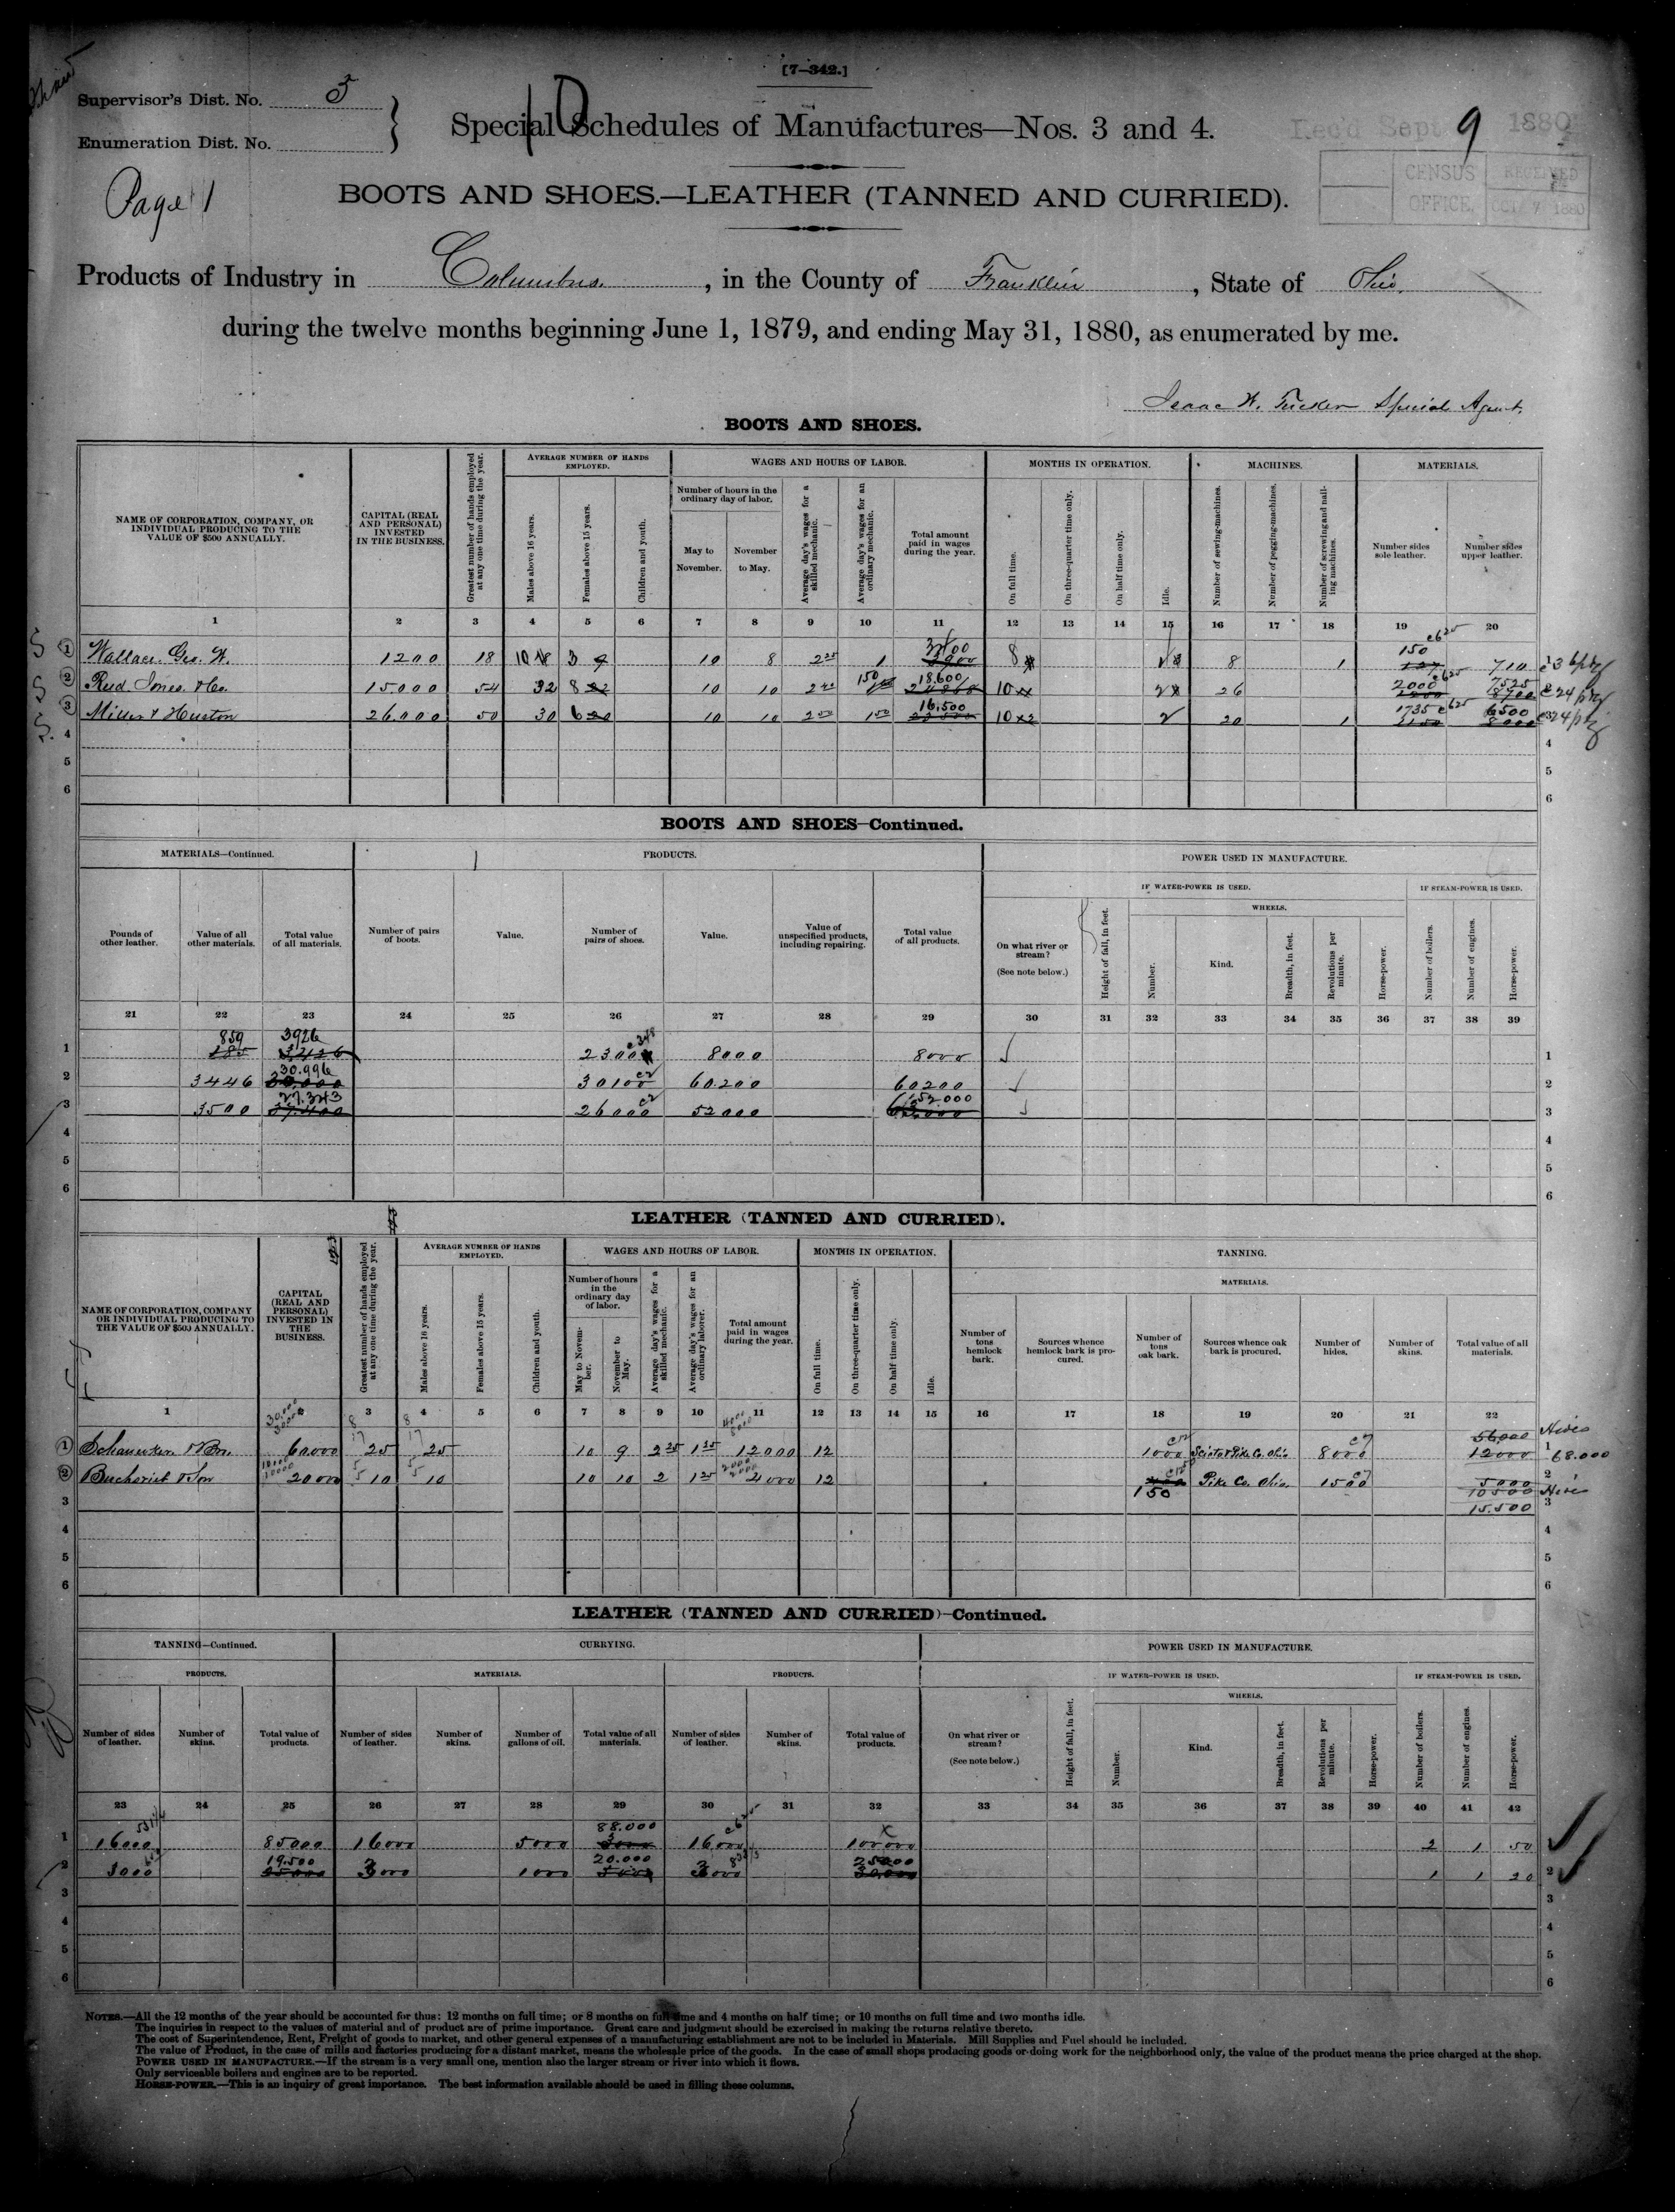 [7—342.]
Supervisor's Dist. No. 3
Enumeration Dist. No.
10
Special Schedules of Manufactures—Nos. 3 and 4.
Rec'd Sept 9 1880
CENSUS OFFICE.
RECEIVED OCT 7 1880
Page 1
BOOTS AND SHOES.—LEATHER (TANNED AND CURRIED).
Products of Industry in Columbus. , in the County of Franklin , State of Ohio.
during the twelve months beginning June 1, 1879, and ending May 31, 1880, as enumerated by me.
Isaac W. Tucker Special Agent.
BOOTS AND SHOES.
NAME OF CORPORATION, COMPANY, OR INDIVIDUAL PRODUCING TO THE VALUE OF $500 ANNUALLY.
CAPITAL (REAL AND PERSONAL) INVESTED IN THE BUSINESS.
Greatest number of hands employed at any one time during the year.
AVERAGE NUMBER OF HANDS EMPLOYED.
Males above 16 years.
Females above 15 years.
Children and youth.
WAGES AND HOURS OF LABOR.
Number of hours in the ordinary day of labor.
May to November.
November to May.
Average day's wages for a skilled mechanic.
Average day's wages for an ordinary mechanic.
Total amount paid in wages during the year.
MONTHS IN OPERATION.
On full time.
On three-quarter time only.
On half time only.
Idle.
MACHINES.
Number of sewing-machines.
Number of pegging-machines.
Number of screwing and nailing machines.
MATERIALS.
Number sides sole leather.
Number sides upper leather.
1 2 3 4 5 6 7 8 9 10 11 12 13 14 15 16 17 18 19 20
1 Wallace. Geo. W. 1200 18 10 3 10 8 2 25 1 8 8 1 150 710
2 Reed Jones. & Co. 15000 54 32 8 10 10 150 18.600 10 26 2000 7525
3 Miller & Huston 26.000 50 30 6 10 10 2 00 1 50 16.500 10 2 20 1 1735 6500
4
5
6
BOOTS AND SHOES—Continued.
MATERIALS—Continued.
Pounds of other leather.
Value of all other materials.
Total value of all materials.
PRODUCTS.
Number of pairs of boots.
Value.
Number of pairs of shoes.
Value.
Value of unspecified products, including repairing.
Total value of all products.
POWER USED IN MANUFACTURE.
On what river or stream?
(See note below.)
IF WATER-POWER IS USED.
Height of fall, in feet.
WHEELS.
Number.
Kind.
Breadth, in feet.
Revolutions per minute.
Horse-power.
IF STEAM-POWER IS USED.
Number of boilers.
Number of engines.
Horse-power.
21 22 23 24 25 26 27 28 29 30 31 32 33 34 35 36 37 38 39
1 859 3926 2300 8000 8000 1
2 3446 30.996 30100 60.200 60200 2
3 3500 27.343 26000 52000 52000 3
4
5
6
LEATHER (TANNED AND CURRIED).
NAME OF CORPORATION, COMPANY OR INDIVIDUAL PRODUCING TO THE VALUE OF $500 ANNUALLY.
CAPITAL (REAL AND PERSONAL) INVESTED IN THE BUSINESS.
Greatest number of hands employed at any one time during the year.
AVERAGE NUMBER OF HANDS EMPLOYED.
Males above 16 years.
Females above 15 years.
Children and youth.
WAGES AND HOURS OF LABOR.
Number of hours in the ordinary day of labor.
May to November.
November to May.
Average day's wages for a skilled mechanic.
Average day's wages for an ordinary laborer.
Total amount paid in wages during the year.
MONTHS IN OPERATION.
On full time.
On three-quarter time only.
On half time only.
Idle.
TANNING.
MATERIALS.
Number of tons hemlock bark.
Sources whence hemlock bark is procured.
Number of tons oak bark.
Sources whence oak bark is procured.
Number of hides.
Number of skins.
Total value of all materials.
1 3 4 5 6 7 8 9 10 11 12 13 14 15 16 17 18 19 20 21 22
56000 Hides
1 60000 25 25 10 9 2 25 1 25 12000 12 1000 Scioto & Pike Co. Ohio 8000 12000 1 68.000
2 & Son 20000 10 10 10 10 2 1 25 4000 12 150 Pike Co. Ohio. 1500 5000 2
10500 Hides
3 15.500 3
4
5
6
LEATHER (TANNED AND CURRIED)—Continued.
TANNING—Continued.
PRODUCTS.
Number of sides of leather.
Number of skins.
Total value of products.
CURRYING.
MATERIALS.
Number of sides of leather.
Number of skins.
Number of gallons of oil.
Total value of all materials.
PRODUCTS.
Number of sides of leather.
Number of skins.
Total value of products.
POWER USED IN MANUFACTURE.
On what river or stream?
(See note below.)
IF WATER-POWER IS USED.
Height of fall, in feet.
WHEELS.
Number.
Kind.
Breadth, in feet.
Revolutions per minute.
Horse-power.
IF STEAM-POWER IS USED.
Number of boilers.
Number of engines.
Horse-power.
23 24 25 26 27 28 29 30 31 32 33 34 35 36 37 38 39 40 41 42
1 16000 85000 16000 5000 88.000 16000 100000 2 1 50
2 3000 19.500 3000 1000 20.000 3000 25000 1 1 20 2
3
4
5
6
NOTES.—All the 12 months of the year should be accounted for thus: 12 months on full time; or 8 months on full time and 4 months on half time; or 10 months on full time and two months idle.
The inquiries in respect to the values of material and of product are of prime importance. Great care and judgment should be exercised in making the returns relative thereto.
The cost of Superintendence, Rent, Freight of goods to market, and other general expenses of a manufacturing establishment are not to be included in Materials. Mill Supplies and Fuel should be included.
The value of Product, in the case of mills and factories producing for a distant market, means the wholesale price of the goods. In the case of small shops producing goods or doing work for the neighborhood only, the value of the product means the price charged at the shop.
POWER USED IN MANUFACTURE.—If the stream is a very small one, mention also the larger stream or river into which it flows.
Only serviceable boilers and engines are to be reported.
HORSE-POWER.—This is an inquiry of great importance. The best information available should be used in filling these columns.